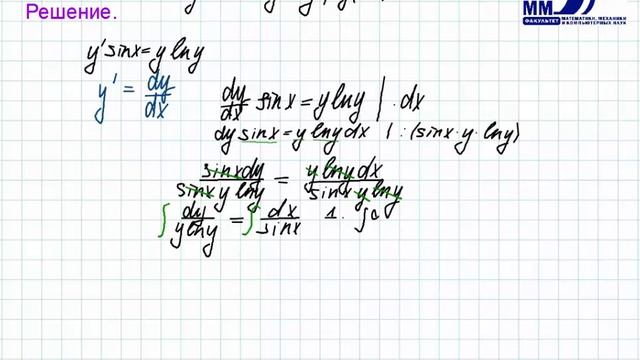 Решение.
ММ
ФАКУЛЬТЕТ
МАТЕМАТИКИ, МЕХАНИКИ
И КОМПЬЮТЕРНЫХ НАУК
y' sinx = y lny
y' = dy/dx
dy/dx sinx = y lny | · dx
dy sinx = y lny dx | : (sinx · y · lny)
sinx dy / sinx y lny = y lny dx / sinx y lny
∫ dy / y lny = ∫ dx / sinx 1. ∫